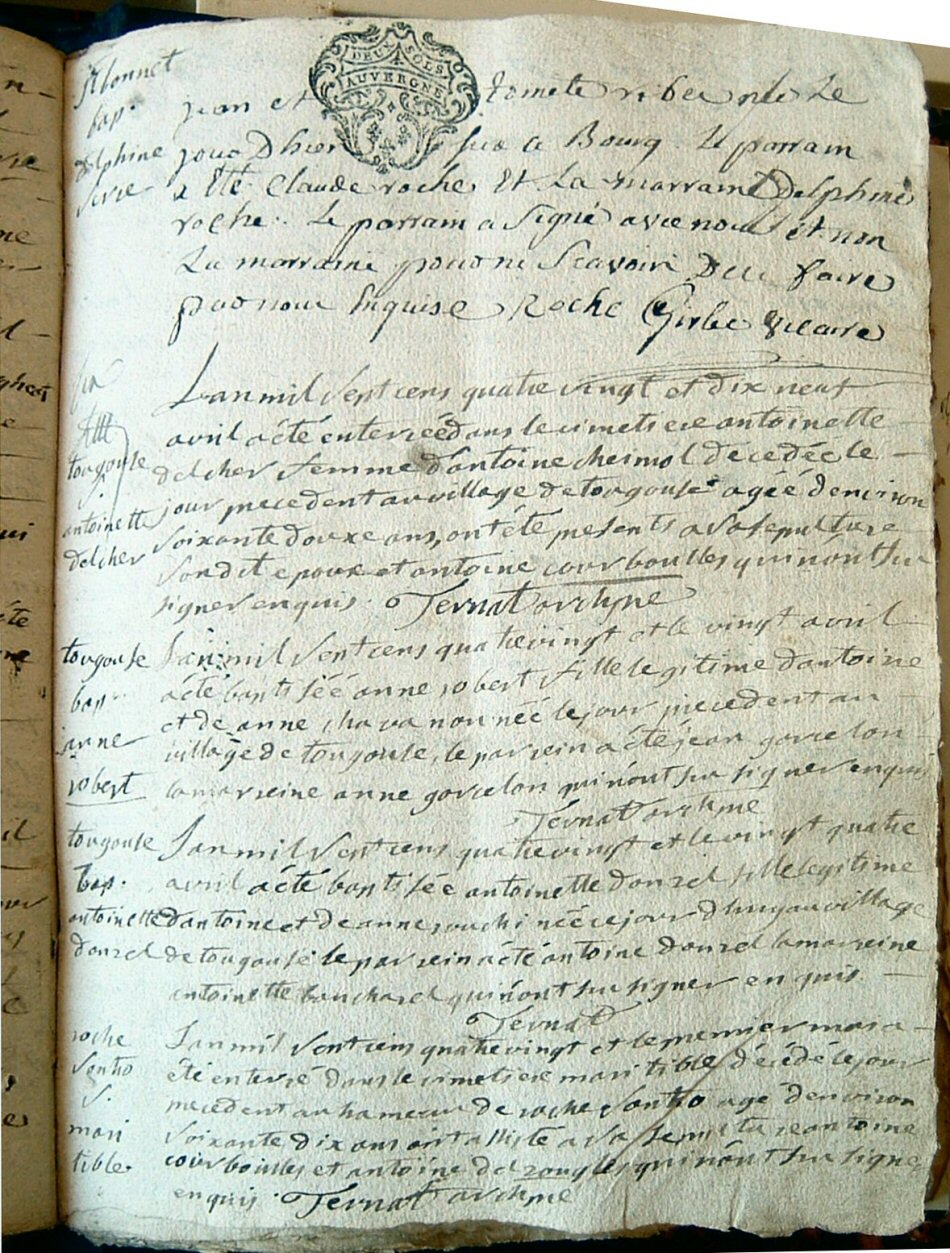 St bonnet
bap.
delphine
serre
DEUX SOLS
AUVERGNE
jean et
jour Dhier a Bourg. Le parrain
a Eté Claude roche Et La marraine Delphine
roche. Le parrain a signé avec nous et non
La marraine pour ne Scavoir De ce faire
par nous Enquise Roche Girbe vicaire
tougouse
S.
antoinette
delcher
Lan mil sept cens quatre vingt et dix neuf
avril a été enterrée dans le cimetiere antoinette
delcher femme d'antoine cheimol decedée le
jour precedent au village de tougouse agée denviron
soixante douxe ans, ont été presents a sa sepulture
son dit epoux et antoine courboulles qui nont su
signer enquis. Ternat archpre
tougouse
bap.
anne
robert
Lan mil sept cens quatre vingt et le vingt avril
a été baptisée anne robert fille legitime dantoine
et de anne chavanon née le jour precedent au
village de tougouse, le parrein a été jean gorcelon
la marreine anne gorcelon qui nont su signer enquis
Ternat archpre
tougouse
bap.
antoinette
douzel
Lan mil sept cens quatre vingt et le vingt quatre
avril a été baptisée antoinette douzel fille legitime
dantoine et de anne souchi née ce jour dhuy au village
de tougouse le parrein a été antoine douzel la marreine
antoinette bouchard qui n'ont su signer enquis.
Ternat
roche
sontho
S.
mari
tible
Lan mil sept cens quatre vingt et le premier mars a
été enterré dans le cimetiere mari tible décédé le jour
precedent au hameau de roche sontho agé denviron
soixante dix ans ont assisté a sa sepulture antoine
courboulles et antoine delzongles qui nont su signer
enquis. Ternat archpre